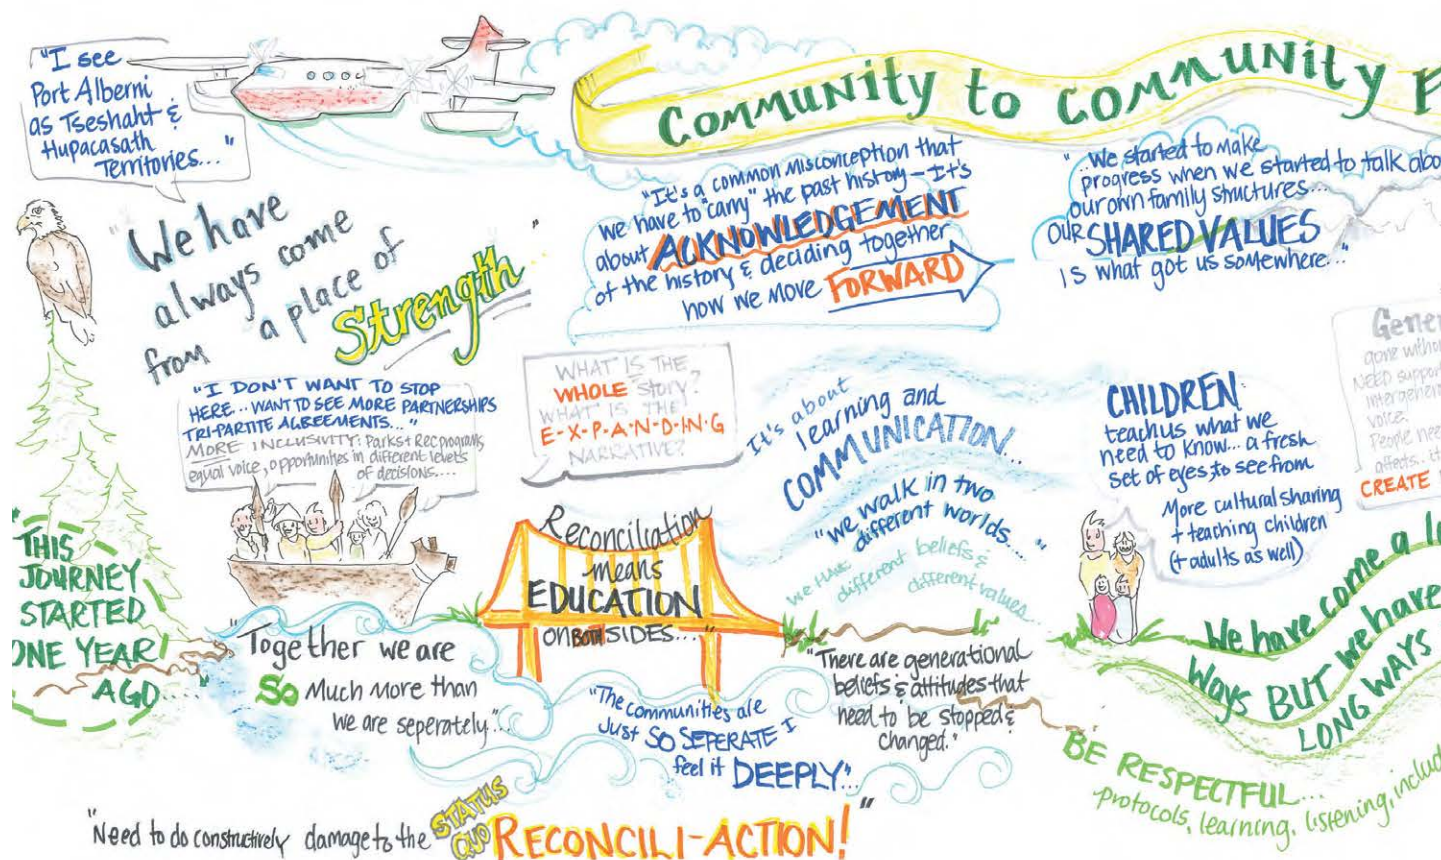 "I see
Port Alberni
as Tseshaht &
Hupacasath
Territories..."
COMMUNITY to COMMUNITY F
"We have
always come
from a place of
Strength"
"It's a common misconception that
we have to "carry" the past history - It's
about ACKNOWLEDGEMENT
of the history & deciding together
how we move FORWARD
"...We started to make
progress when we started to talk abou
our own family structures...
OUR SHARED VALUES
IS what got us somewhere..."
"I DON'T WANT TO STOP
HERE... WANT TO SEE MORE PARTNERSHIPS
TRI-PARTITE AGREEMENTS..."
MORE INCLUSIVITY: Parks + Rec programs
equal voice, opportunities in different levels
of decisions....
WHAT IS THE
WHOLE Story?
WHAT IS THE
E-X-P-A-N-D-I-N-G
NARRATIVE?
It's about
learning and
COMMUNICATION...
"we walk in two
different worlds...."
we have different beliefs &
different values
CHILDREN
teach us what we
need to know... a fresh
set of eyes to see from
More cultural sharing
+ teaching children
(+ adults as well)
Gener
gone withou
NEED suppor
intergener
voice.
People nee
affects..
CREATE
"THIS
JOURNEY
STARTED
ONE YEAR
AGO...
"Together we are
SO Much more than
we are seperately..."
Reconciliation
means
EDUCATION
ON BOTH SIDES..."
"The communities are
Just SO SEPERATE I
feel it DEEPLY"
"There are generational
beliefs & attitudes that
need to be stopped &
changed."
We have come a l
Ways BUT we have
LONG WAYS
BE RESPECTFUL...
protocols, learning, listening, includ
"Need to do constructively damage to the STATUS QUO RECONCILI-ACTION!"